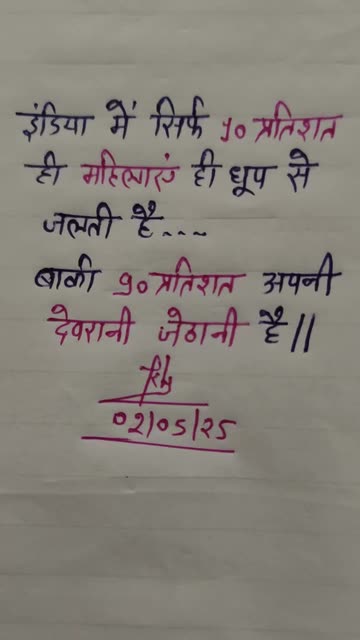 इंडिया में सिर्फ १० प्रतिशत
ही महिलाएं ही धूप से
जलती है....
बाकी 90 प्रतिशत अपनी
देवरानी जेठानी है||
02/05/25